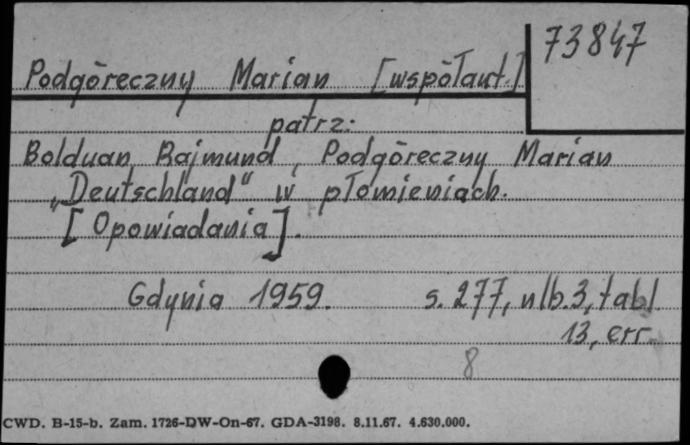 73847
Podgóreczny Marian [współaut.]
patrz:
Bolduan Rajmund, Podgóreczny Marian
„Deutschland" w płomieniach.
[Opowiadania].
Gdynia 1959. s. 277, nlb. 3, tabl.
13, err.
8
CWD. B-15-b. Zam. 1726-DW-On-67. GDA-3198. 8.11.67. 4.630.000.